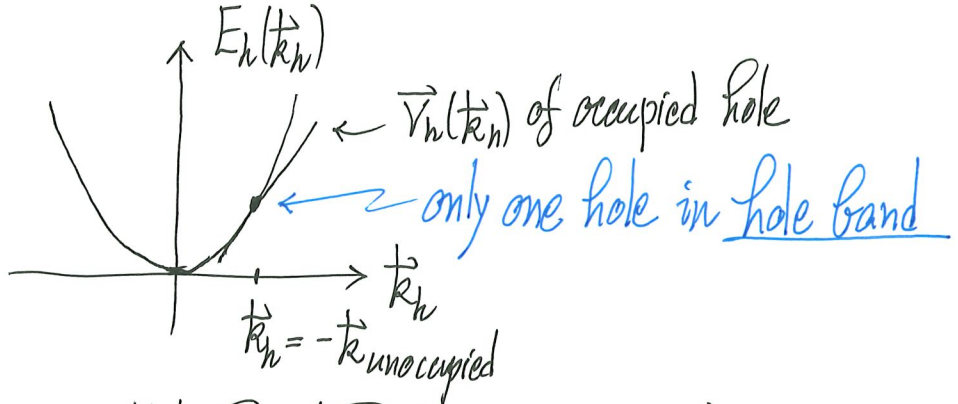 E_h(k⃗_h)
← v⃗_h(k⃗_h) of occupied hole
← only one hole in hole band
k⃗_h
k⃗_h = -k⃗_unoccupied